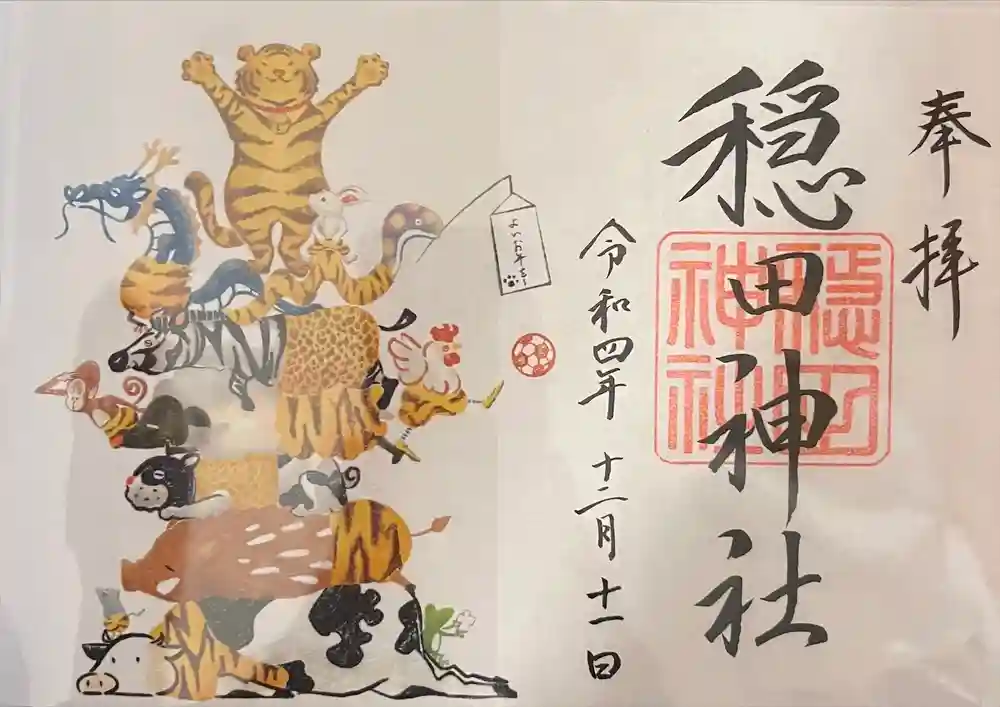 奉拝
穏田神社
穏田神社
令和四年十二月十一日
よいお年を